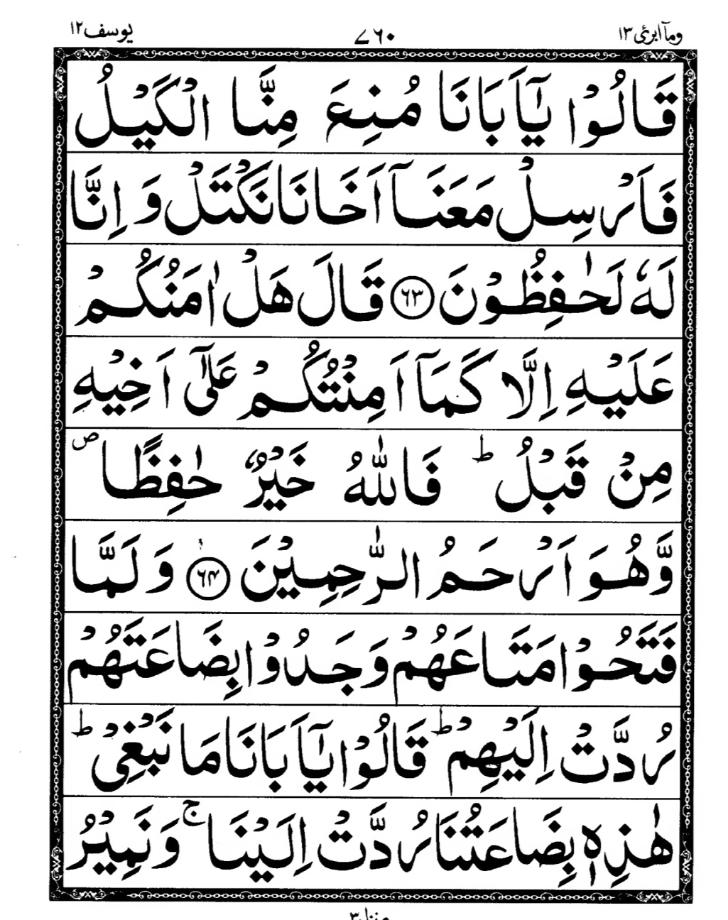 وما ابرئ ١٣ ٧٦٠ يوسف ١٢
قَالُوْا يٰۤاَبَانَا مُنِعَ مِنَّا الْكَيْلُ
فَاَرْسِلْ مَعَنَاۤ اَخَانَا نَكْتَلْ وَ اِنَّا
لَهٗ لَحٰفِظُوْنَ ﴿۶۳﴾ قَالَ هَلْ اٰمَنُكُمْ
عَلَيْهِ اِلَّا كَمَاۤ اَمِنْتُكُمْ عَلٰۤى اَخِيْهِ
مِنْ قَبْلُ ؕ فَاللّٰهُ خَيْرٌ حٰفِظًا ۪
وَّهُوَ اَرْحَمُ الرّٰحِمِيْنَ ﴿۶۴﴾ وَ لَمَّا
فَتَحُوْا مَتَاعَهُمْ وَجَدُوْا بِضَاعَتَهُمْ
رُدَّتْ اِلَيْهِمْ ؕ قَالُوْا يٰۤاَبَانَا مَا نَبْغِيْ ؕ
هٰذِهٖ بِضَاعَتُنَا رُدَّتْ اِلَيْنَا ۚ وَنَمِيْرُ
منزل ٣